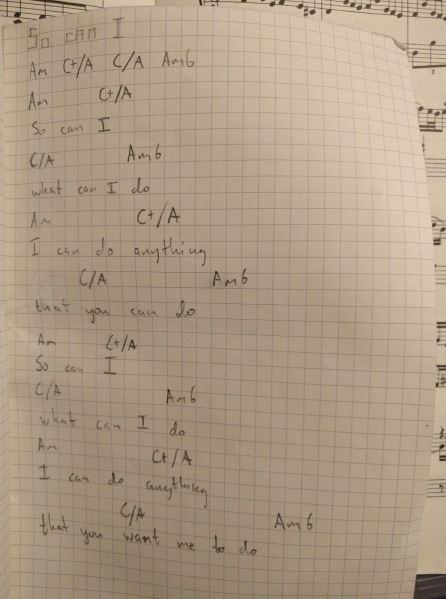 So can I
Am C+/A C/A Am6
Am C+/A
So can I
C/A Am6
what can I do
Am C+/A
I can do anything
C/A Am6
that you can do
Am C+/A
So can I
C/A Am6
what can I do
Am C+/A
I can do anything
C/A Am6
that you want me to do